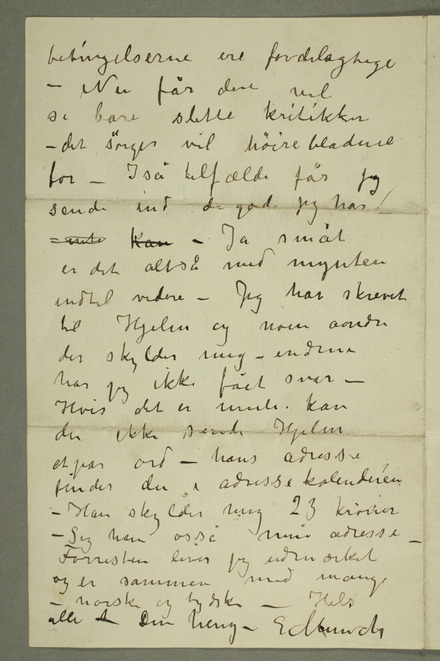 betingelserne ere fordelagtige
– Nu får den vel
se bare slette kritikker
– det sørger vel höirebladene
for – I så tilfælde får jeg
sende ind de gode jeg har!
Kan – Ja småt
er det altså med mynten
indtil videre – Jeg har skrevet
til Hjelm og noen andre
der skylder mig – endnu
har jeg ikke fået svar –
Hvis det er kan
du ikke sende Hjelm
et par ord – hans adresse
finder du i adressekalenderen
– Han skylder mig 23 kroner
– Sig ham også min adresse –
Forresten lever jeg udmærket
og er sammen med mange
– norske og tydske – Hels
alle Din heng. E Munch